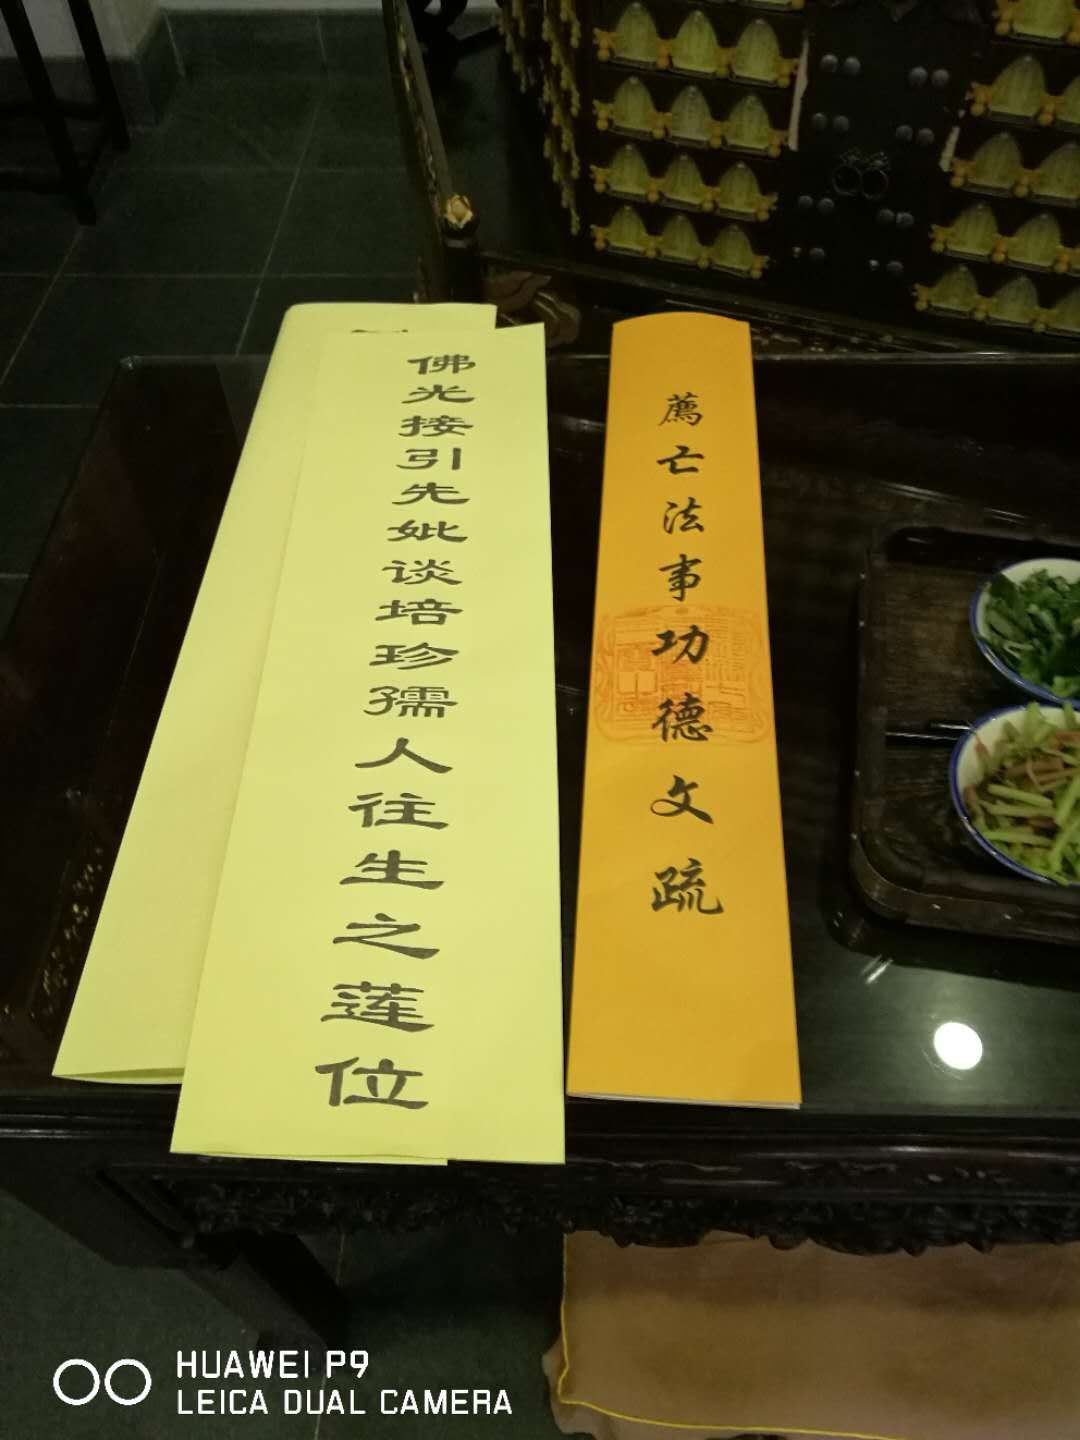 佛光接引先妣谈培珍孺人往生之莲位
薦亡法事功德文疏
HUAWEI P9
LEICA DUAL CAMERA